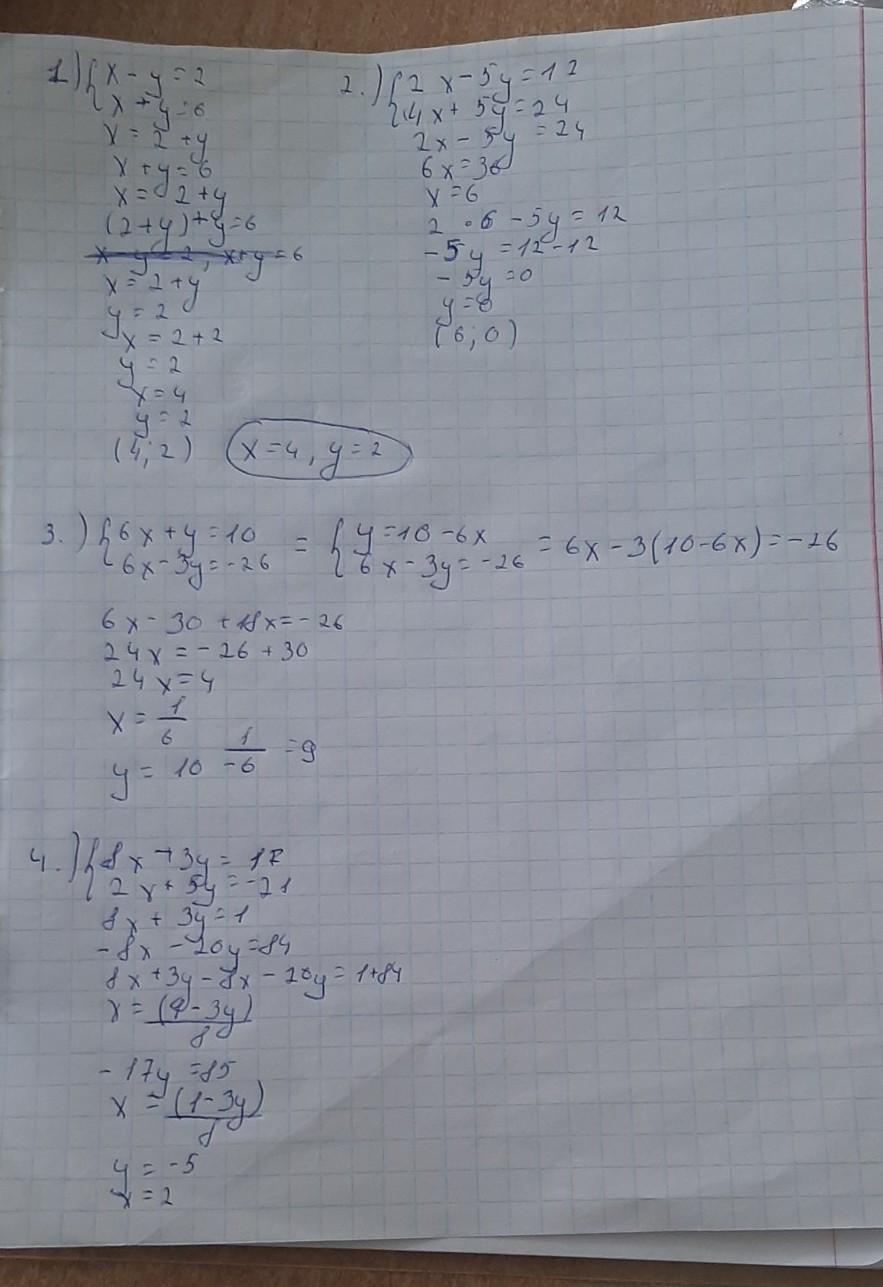 1) { x - y = 2
x + y = 6
x = 2 + y
x + y = 6
x = 2 + y
(2 + y) + y = 6
x - y = 2, x + y = 6
x = 2 + y
y = 2
x = 2 + 2
y = 2
x = 4
y = 2
(4; 2) x = 4, y = 2
2.) { 2x - 5y = 12
4x + 5y = 24
2x - 5y = 24
6x = 36
x = 6
2 · 6 - 5y = 12
-5y = 12 - 12
-5y = 0
y = 0
(6; 0)
3.) { 6x + y = 10 = { y = 10 - 6x = 6x - 3(10 - 6x) = -26
6x - 3y = -26 6x - 3y = -26
6x - 30 + 18x = -26
24x = -26 + 30
24x = 4
x = 1/6
y = 10 1/-6 = 9
4.) { 8x + 3y =
2x + 5y = -21
8x + 3y = 1
-8x - 20y = 84
8x + 3y - 8x - 20y = 1 + 84
x = ( - 3y)/8
-17y = 85
x = (1 - 3y)/8
y = -5
x = 2